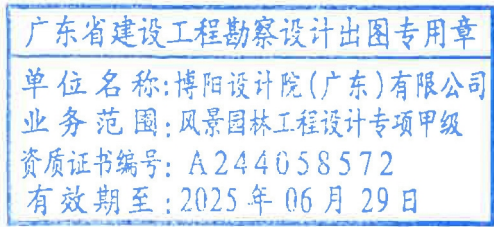 广东省建设工程勘察设计出图专用章
单位名称:博阳设计院(广东)有限公司
业务范围:风景园林工程设计专项甲级
资质证书编号: A244058572
有效期至:2025年06月29日